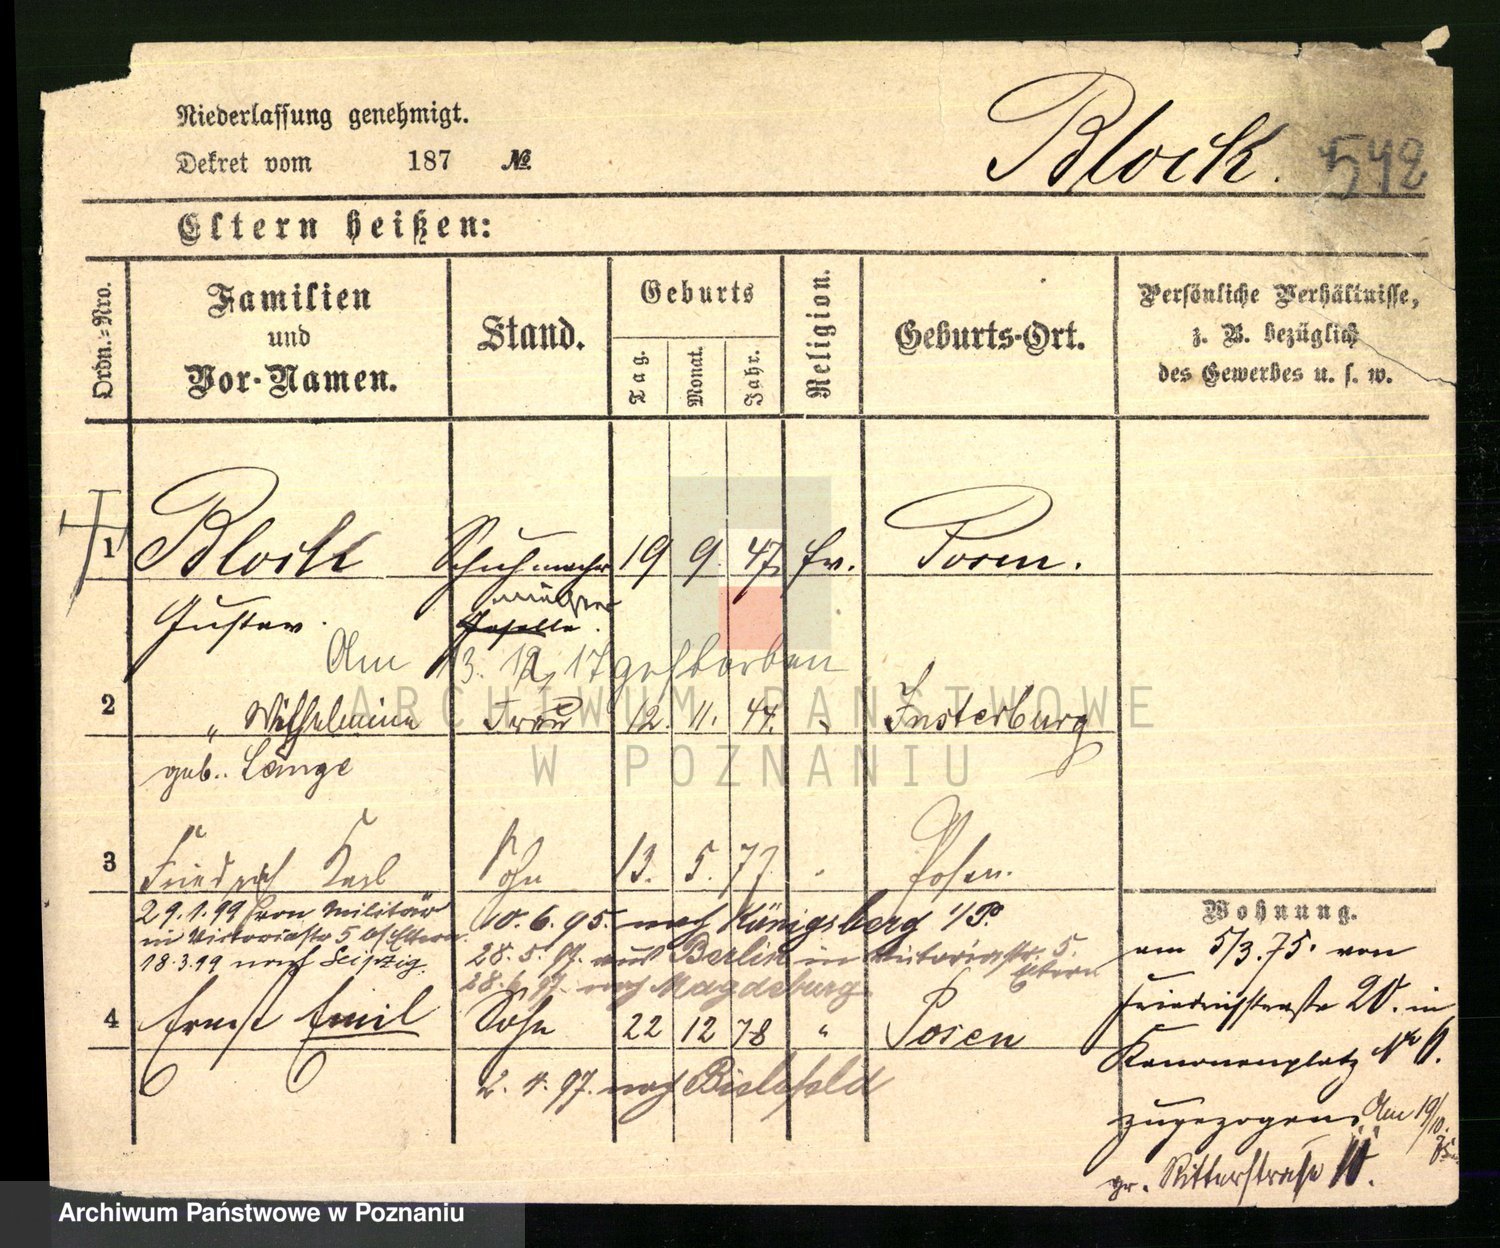 Niederlassung genehmigt.
Dekret vom 187 №
Block. 542
Eltern heißen:
Ordn.-Nro.
Familien
und
Vor-Namen.
Stand.
Geburts
Tag.
Monat.
Jahr.
Religion.
Geburts-Ort.
Persönliche Verhältnisse,
z. B. bezüglich
des Gewerbes u. s. w.
1 Block Schuhmacher 19 9. 47. ev. Posen.
Gustav. Geselle.
Am 13. 12. 17 gestorben
ARCHIWUM PAŃSTWOWE
W POZNANIU
2 " Wilhelmine Frau 12. 11. 44. " Insterburg
geb. Lange
3 Friedrich Karl Sohn 13. 5. 77. " Posen.
29.1.99 von Militär
in Victoriastr 5 b/ Eltern.
18.3.99 nach Leipzig.
10.6.95. nach Königsberg i/P.
28.5.97. aus Berlin in Victoriastr. 5.
Eltern
28. 6. 97. nach Magdeburg.
4 Ernst Emil Sohn 22 12 78 " Posen
2. 4. 97. nach Bielefeld
Wohnung.
am 5/3.75. von
Friedrichstraße 20. in
Kanonenplatz Nr 6.
zugezogen. Am 19/10.75
gr. Ritterstraße 10.
Archiwum Państwowe w Poznaniu